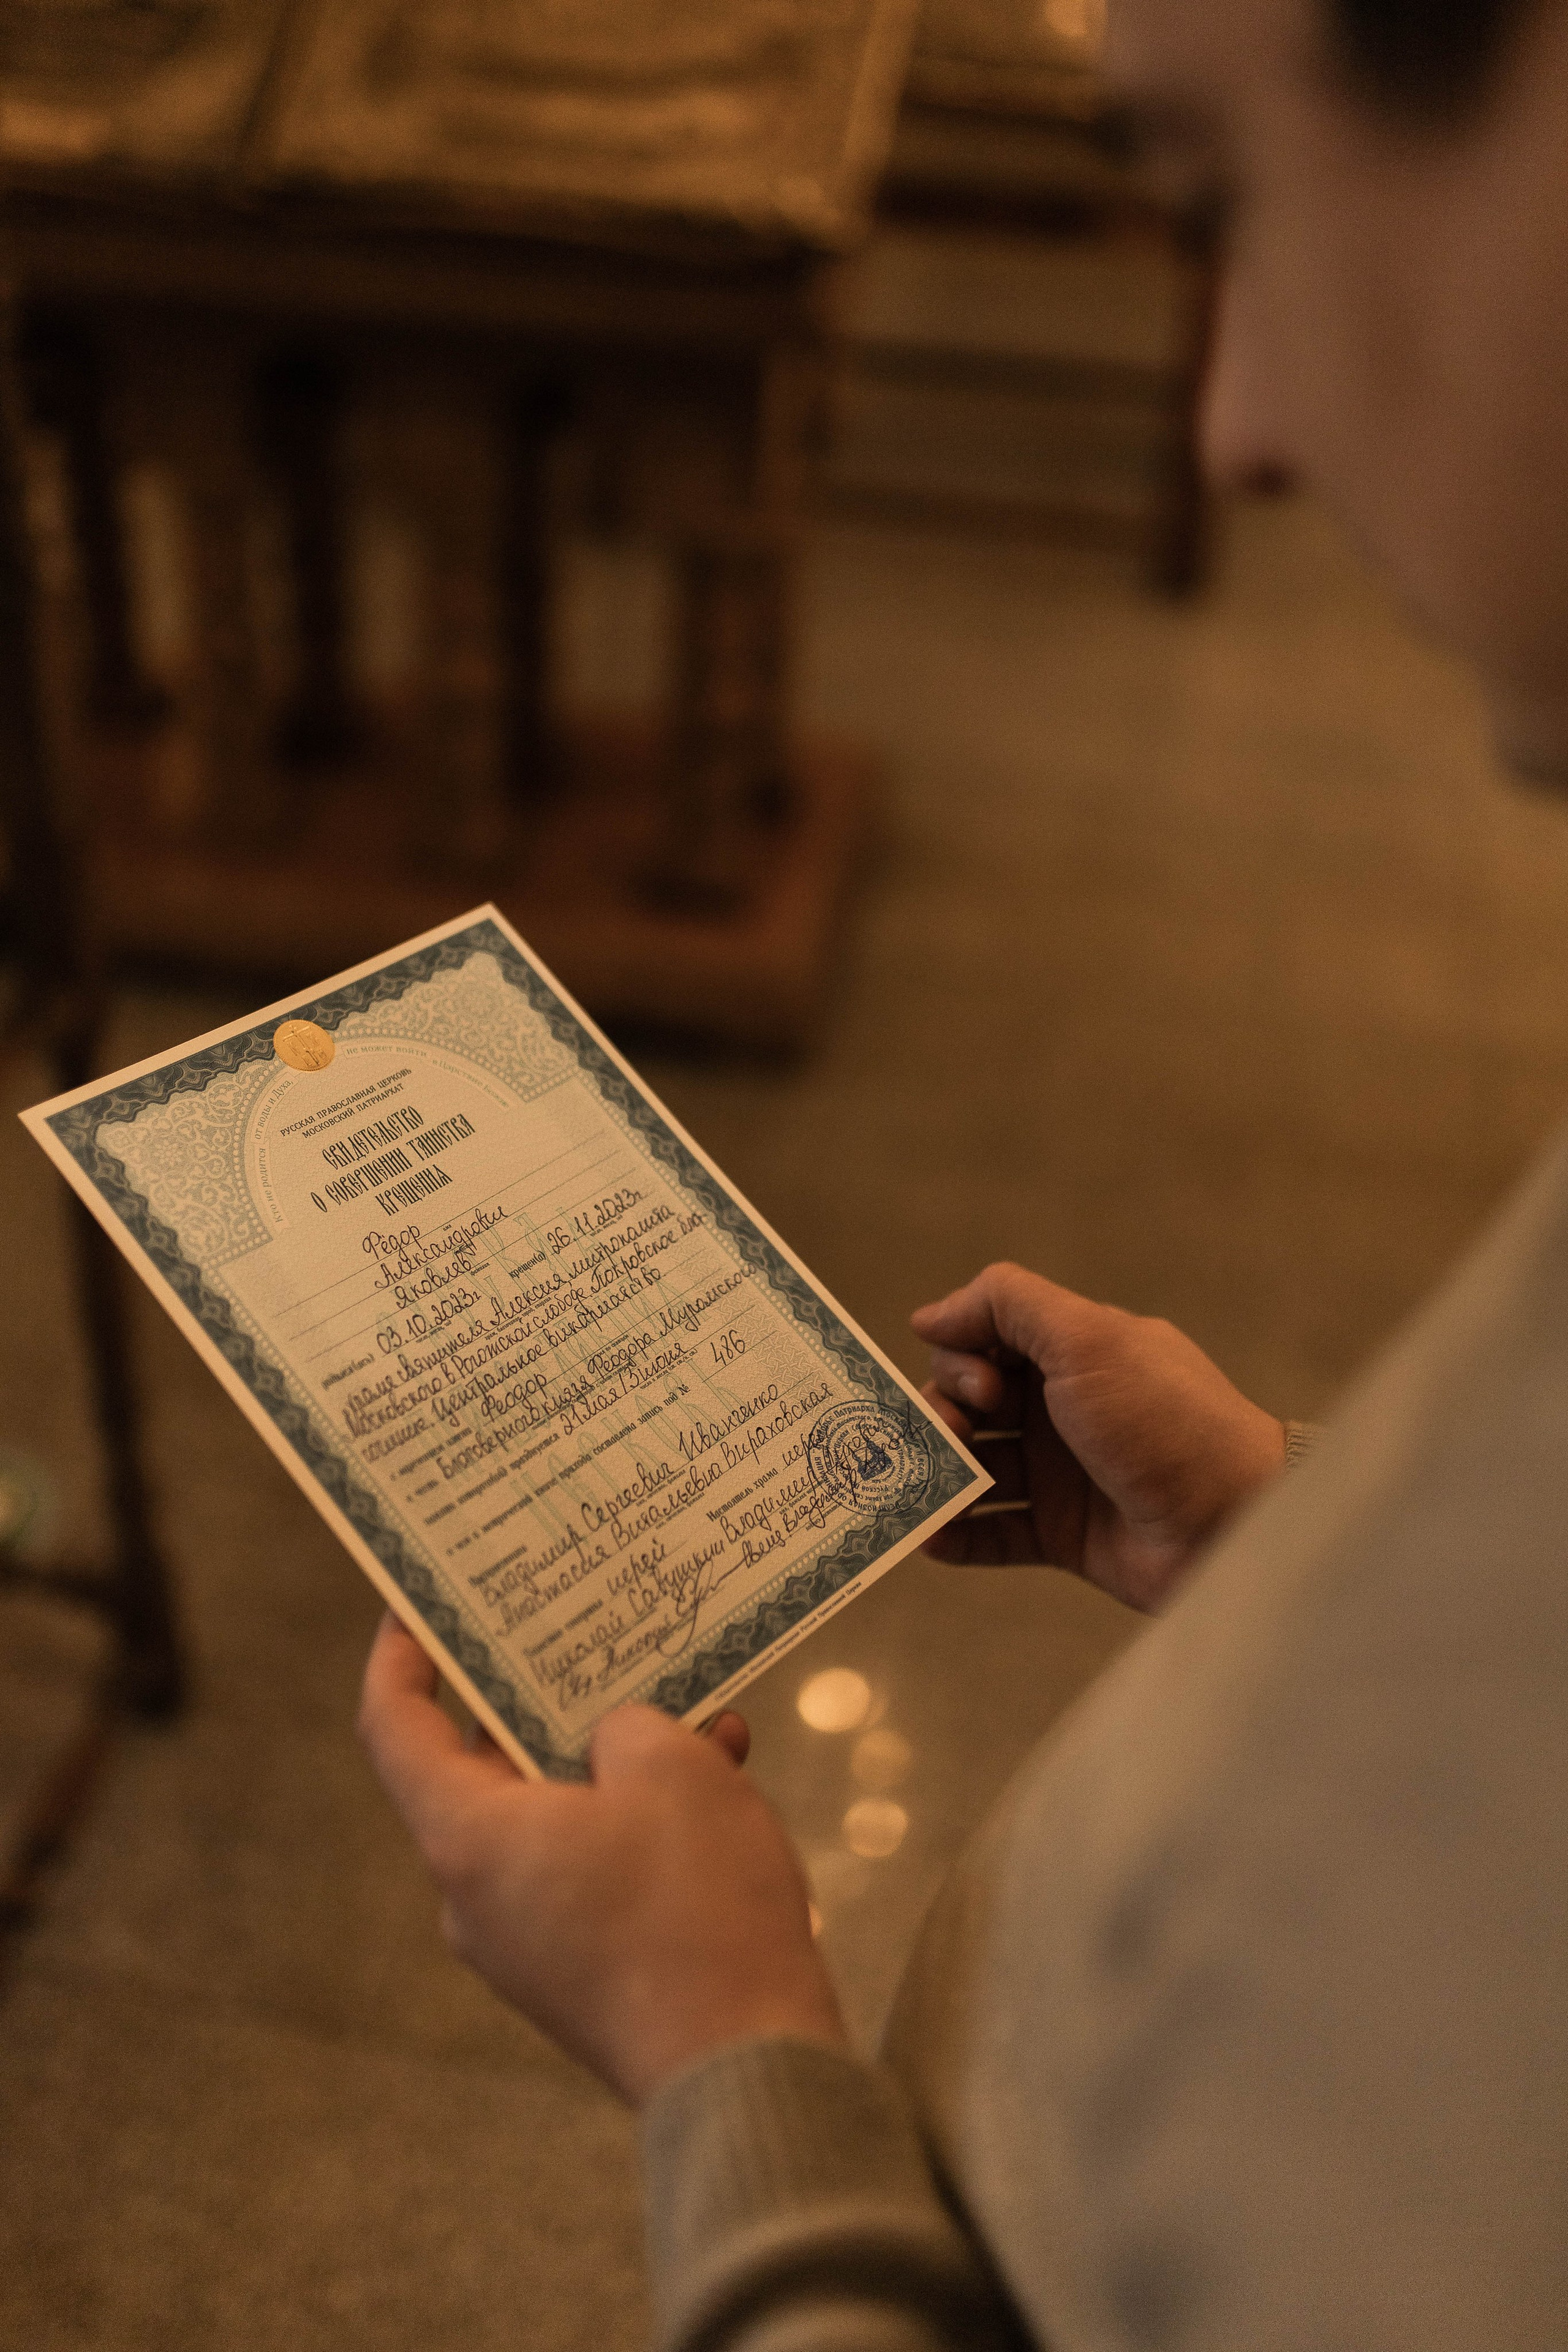 Кто не родится от воды и Духа, не может войти в Царствие Божие
РУССКАЯ ПРАВОСЛАВНАЯ ЦЕРКОВЬ
МОСКОВСКИЙ ПАТРИАРХАТ
СВИДЕТЕЛЬСТВО
О СОВЕРШЕНИИ ТАИНСТВА
КРЕЩЕНИЯ
Фёдор
имя
Александрович
Яковлев
фамилия
родился(ась) 03.10.2023г крещен(а) 26.11.2023г.
храме святителя Алексия, митрополита
Московского в Рогожской слободе Покровское бла-
гочиние. Центральное викариатство
с наречением имени Феодор
в честь Благоверного князя Феодора Муромского
память которого(ой) празднуется 21 мая/3 июня
о чем в метрической книге прихода составлена запись под № 486
Восприемники
Владимир Сергеевич Иванченко
Анастасия Витальевна Вираховская
Таинство совершил иерей Настоятель храма иерей
Николай Савушкин Владимир